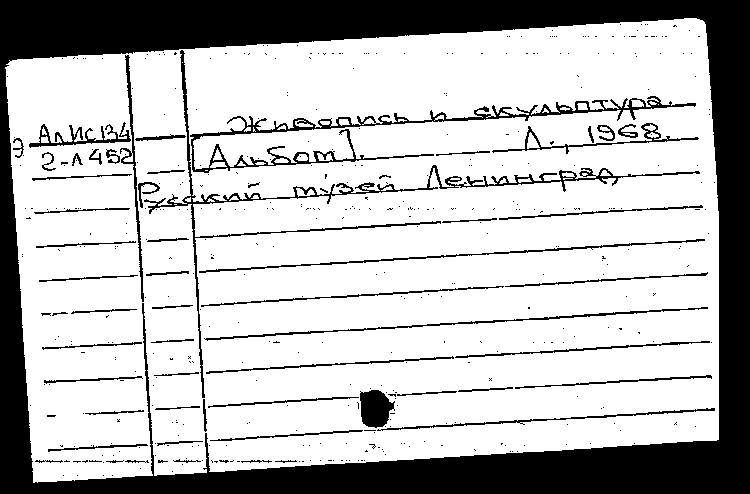 Живопись и скульптура.
Э АлИс134
2-Л452
[Альбом]. Л., 1968.
Русский музей Ленинград.